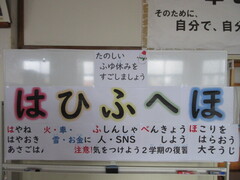 そのために、
自分で、自分
たのしい
ふゆ休みを
すごしましょう
はひふへほ
はやね 火・車・ ふしんしゃ べんきょう ほこりを
はやおき 雪・お金に 人・SNS しよう はらおう
あさごはん 注意!気をつけよう 2学期の復習 大そうじ